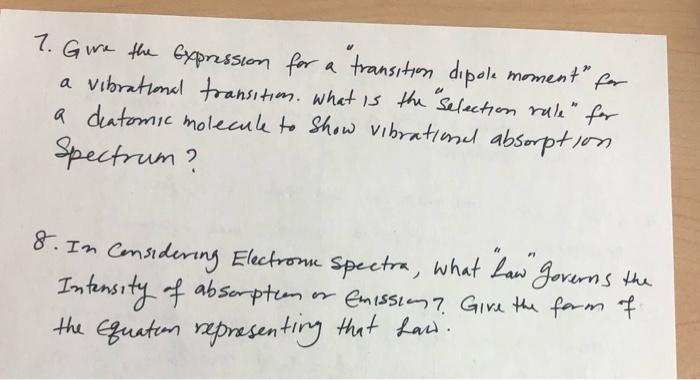 7. Give the Expression for a "transition dipole moment" for
a vibrational transition. what is the "Selection rule" for
a diatomic molecule to Show vibrational absorption
Spectrum?
8. In Considering Electronic Spectra, what "Law" governs the
Intensity of absorption or Emission? Give the form of
the Equation representing that Law.